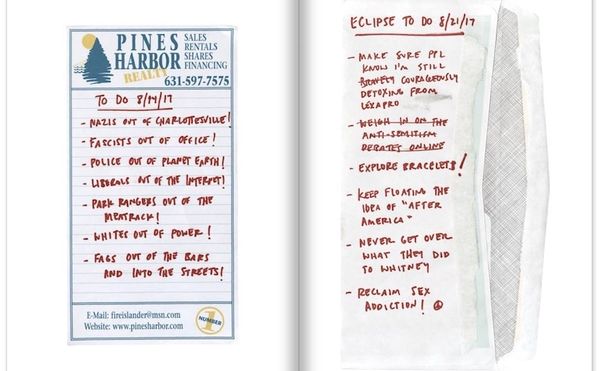 PINES
HARBOR
REALTY
SALES
RENTALS
SHARES
FINANCING
631-597-7575
TO DO 8/14/17
- NAZIS OUT OF CHARLOTTESVILLE!
- FASCISTS OUT OF OFFICE!
- POLICE OUT OF PLANET EARTH!
- LIBERALS OUT OF THE INTERNET!
- PARK RANGERS OUT OF THE
MEATRACK!
- WHITES OUT OF POWER!
- FAGS OUT OF THE BARS
AND INTO THE STREETS!
E-Mail: fireislander@msn.com
Website: www.pinesharbor.com
NUMBER
1
ECLIPSE TO DO 8/21/17
- MAKE SURE PPL
KNOW I'M STILL
BRAVELY COURAGEOUSLY
DETOXING FROM
LEXAPRO
- WEIGH IN ON THE
ANTI-SEMITISM
DEBATES ONLINE
- EXPLORE BRACELETS!
- KEEP FLOATING THE
IDEA OF "AFTER
AMERICA"
- NEVER GET OVER
WHAT THEY DID
TO WHITNEY
- RECLAIM SEX
ADDICTION! ☮